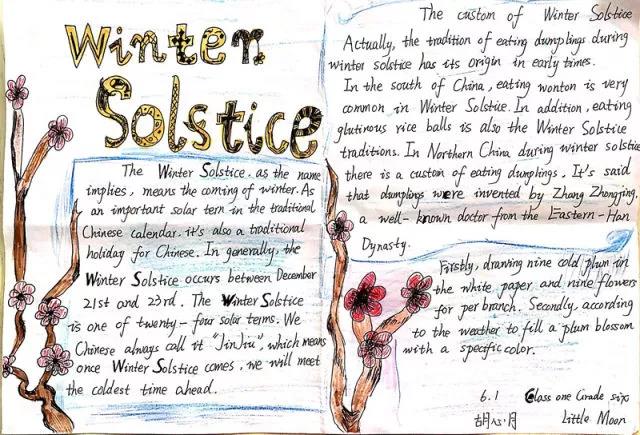 Winter
Solstice
The Winter Solstice. as the name
implies, means the coming of winter. As
an important solar tern in the traditional
Chinese calendar. it's also a traditional
holiday for Chinese. In generally, the
Winter Solstice occurs between December
21st and 23rd. The Winter Solstice
is one of twenty-four solar terms. We
Chinese always call it "JinJiu", which means
once Winter Solstice comes, we will meet
the coldest time ahead.
The custom of Winter Solstice
Actually, the tradition of eating dumplings during
winter solstice has its origin in early times.
In the south of China, eating wonton is very
common in Winter Solstice. In addition, eating
glutinous rice balls is also the Winter Solstice
traditions. In Northern China during winter solstice
there is a custom of eating dumplings. It's said
that dumplings were invented by Zhang Zhongjing,
a well-known doctor from the Eastern-Han
Dynasty.
Firstly, drawing nine cold plum in
the white paper and nine flowers
for per branch. Secondly, according
to the weather to fill a plum blossom
with a specific color.
6.1 Class one Grade six
胡心月 Little Moon